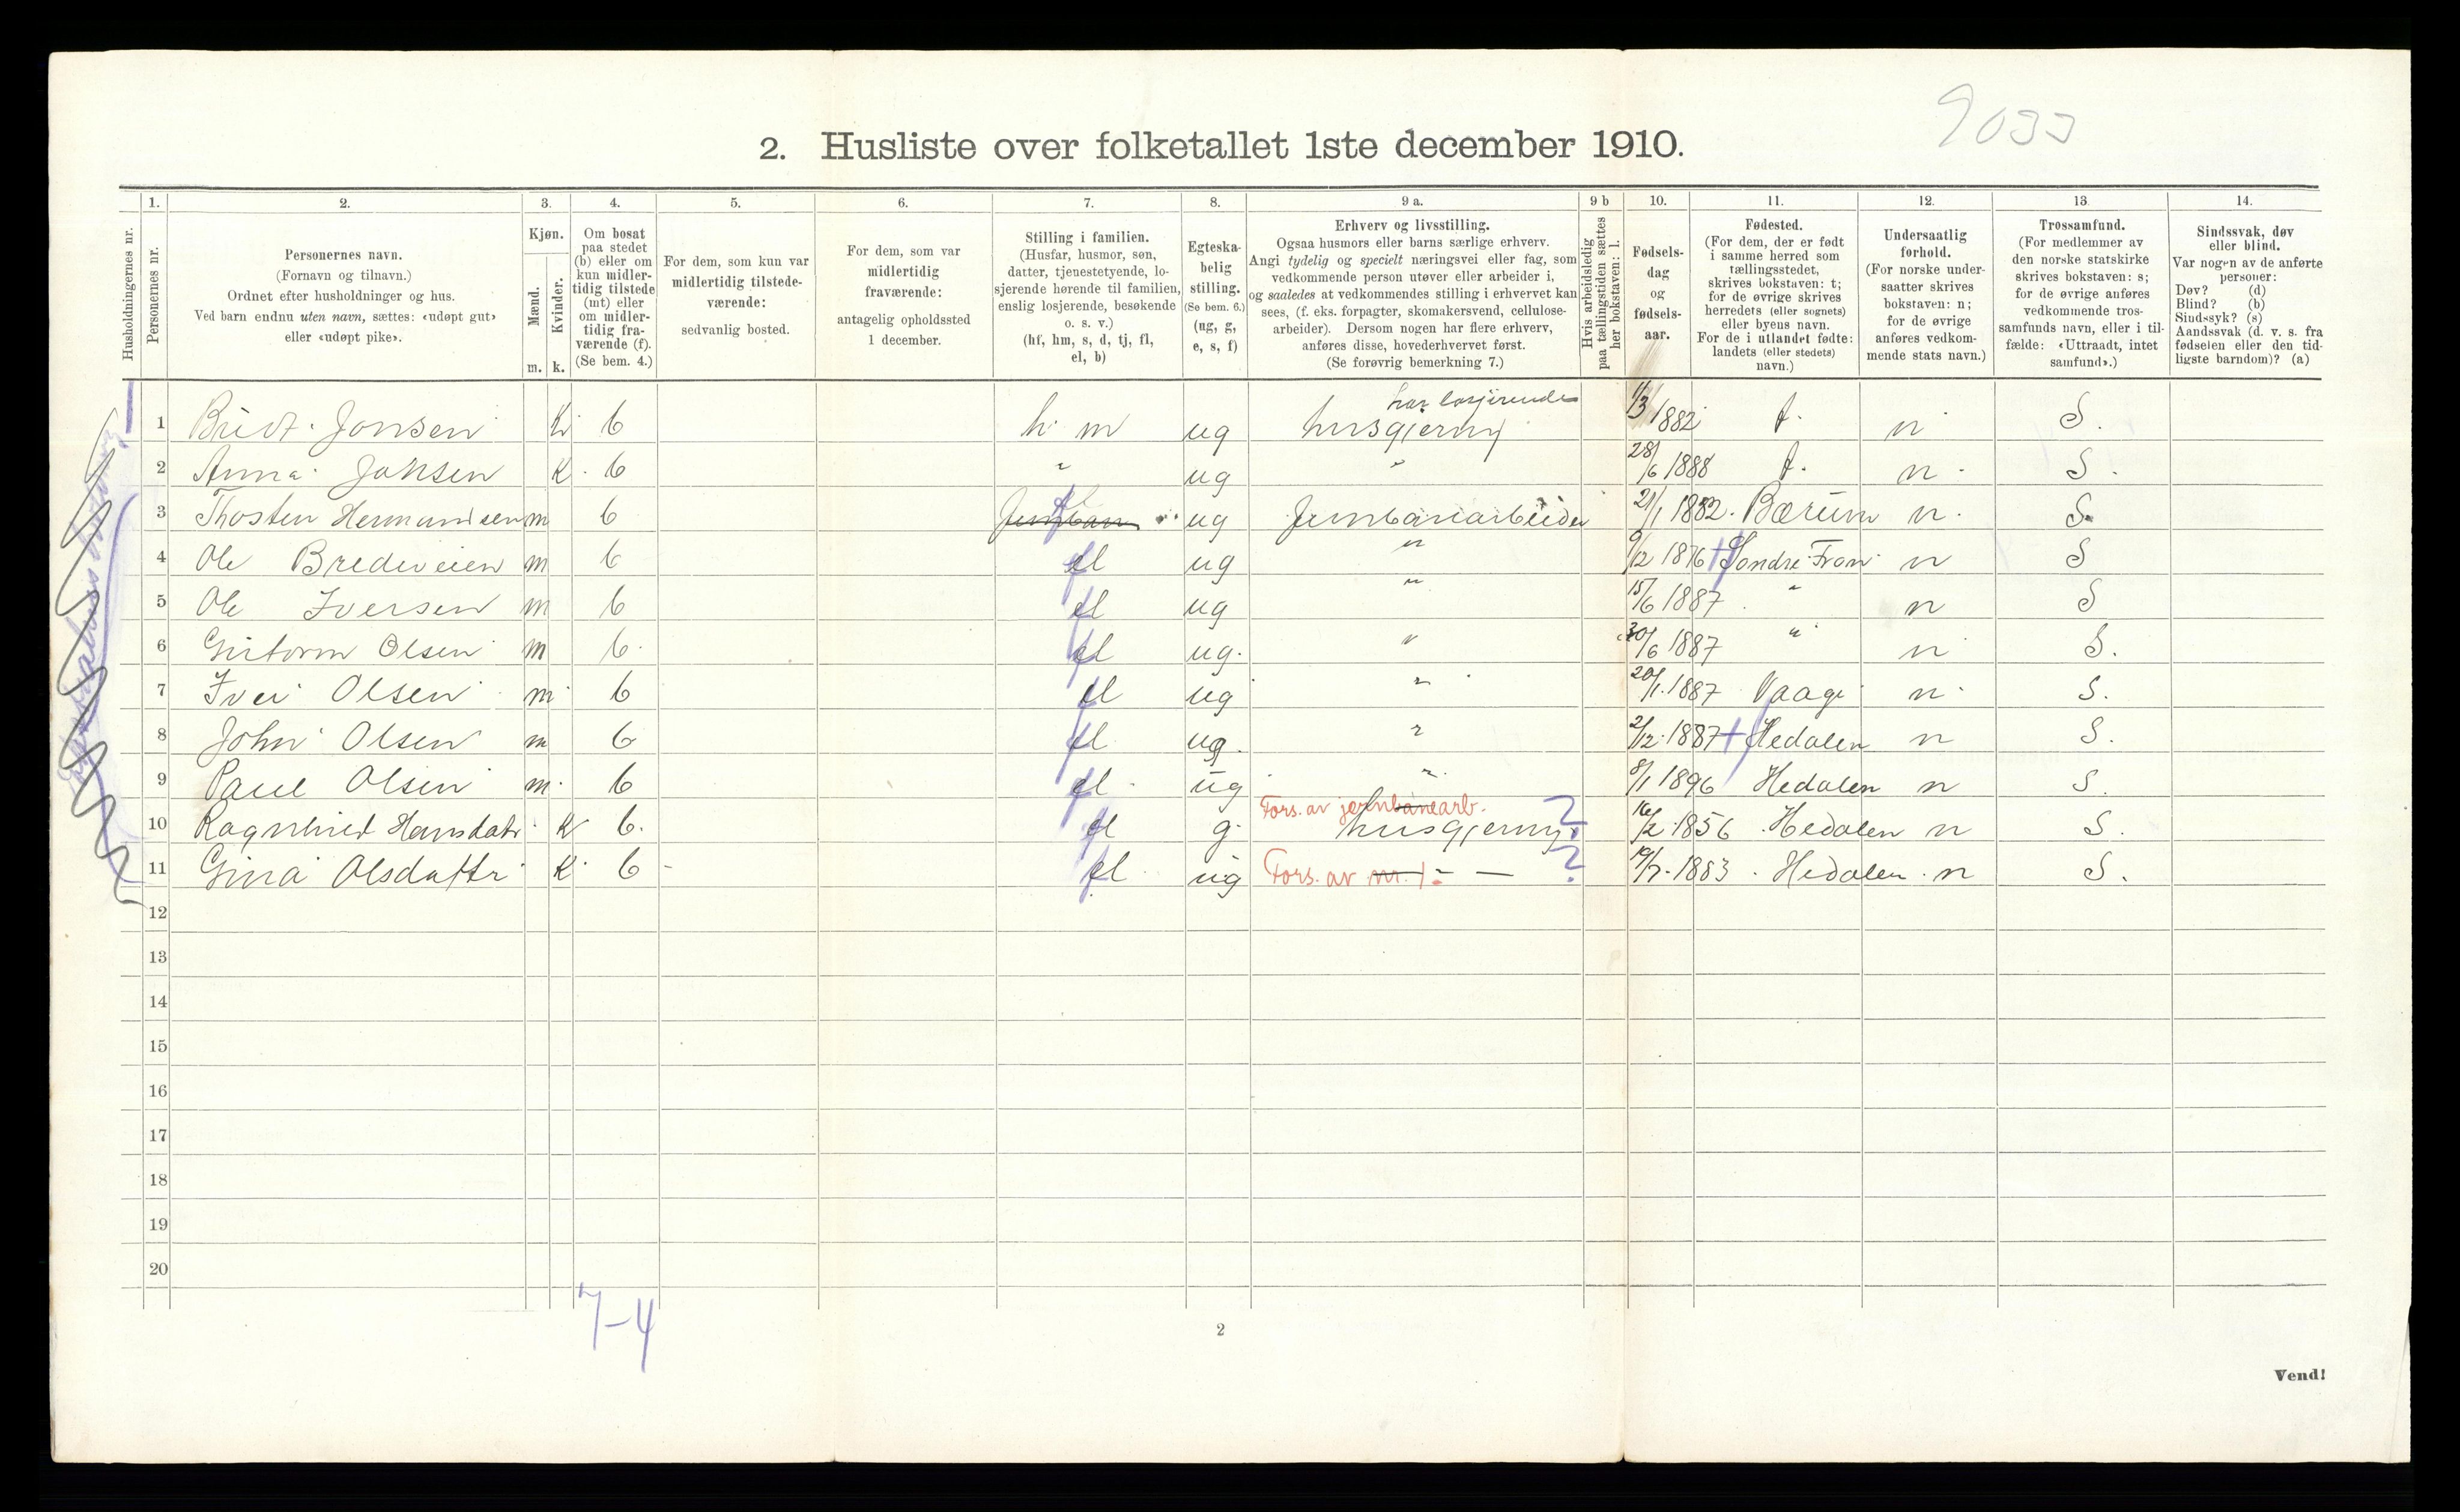 9033
2. Husliste over folketallet 1ste december 1910.
Husholdningernes nr.
1. Personernes nr.
2. Personernes navn.
(Fornavn og tilnavn.)
Ordnet efter husholdninger og hus.
Ved barn endnu uten navn, sættes: «udøpt gut»
eller «udøpt pike».
3. Kjøn.
Mænd. Kvinder.
m. k.
4. Om bosat
paa stedet
(b) eller om
kun midler-
tidig tilstede
(mt) eller
om midler-
tidig fra-
værende (f).
(Se bem. 4.)
5. For dem, som kun var
midlertidig tilstede-
værende:
sedvanlig bosted.
6. For dem, som var
midlertidig
fraværende:
antagelig opholdssted
1 december.
7. Stilling i familien.
(Husfar, husmor, søn,
datter, tjenestetyende, lo-
sjerende hørende til familien,
enslig losjerende, besøkende
o. s. v.)
(hf, hm, s, d, tj, fl,
el, b)
8. Egteska-
belig
stilling.
(Se bem. 6.)
(ug, g,
e, s, f)
9 a. Erhverv og livsstilling.
Ogsaa husmors eller barns særlige erhverv.
Angi tydelig og specielt næringsvei eller fag, som
vedkommende person utøver eller arbeider i,
og saaledes at vedkommendes stilling i erhvervet kan
sees, (f. eks. forpagter, skomakersvend, cellulose-
arbeider). Dersom nogen har flere erhverv,
anføres disse, hovederhvervet først.
(Se forøvrig bemerkning 7.)
9 b Hvis arbeidsledig
paa tællingstiden sættes
her bokstaven: l.
10. Fødsels-
dag
og
fødsels-
aar.
11. Fødested.
(For dem, der er født
i samme herred som
tællingsstedet,
skrives bokstaven: t;
for de øvrige skrives
herredets (eller sognets)
eller byens navn.
For de i utlandet fødte:
landets (eller stedets)
navn.)
12. Undersaatlig
forhold.
(For norske under-
saatter skrives
bokstaven: n;
for de øvrige
anføres vedkom-
mende stats navn.)
13. Trossamfund.
(For medlemmer av
den norske statskirke
skrives bokstaven: s;
for de øvrige anføres
vedkommende tros-
samfunds navn, eller i til-
fælde: «Uttraadt, intet
samfund».)
14. Sindssvak, døv
eller blind.
Var nogen av de anførte
personer:
Døv? (d)
Blind? (b)
Sindssyk? (s)
Aandssvak (d. v. s. fra
fødselen eller den tid-
ligste barndom)? (a)
har losjerende
1 Bridt. Jonsen K b h m ug husgjerning 1/3 1882 t. n S.
2 Anna Jonsen K. b " ug " 28/6 1888 t. n. S.
3 Thosten Hermandsen m b Jernban ug Jernbanearbeider 21/1 1882. Bærum n. S.
4 Ole Bredeveien m b el ug " 9/12 1876 Söndre Fron n S
5 Ole Iversen m b el ug " 15/6 1887 " n S
6 Gutorm Olsen m b. el ug. " 30/6 1887 " n S.
7 Iver Olsen m b el ug " 20/1 1887 Vaage n S.
8 John Olsen m b el ug. " 2/12 1887 Hedalen n S.
9 Paul Olsen m. b el ug " 8/1 1896 Hedalen n S.
Fors. av jernbanearb.
10 Ragnhild Hansdatr K b. el g. husgjerning ? 16/2 1856 Hedalen n S.
11 Gina Olsdattr K b el ug Fors. av nr. 1. - — ? 19/7 1883 Hedalen n S.
12
13
14
15
16
17
18
19
20
7-4
2
Vend!